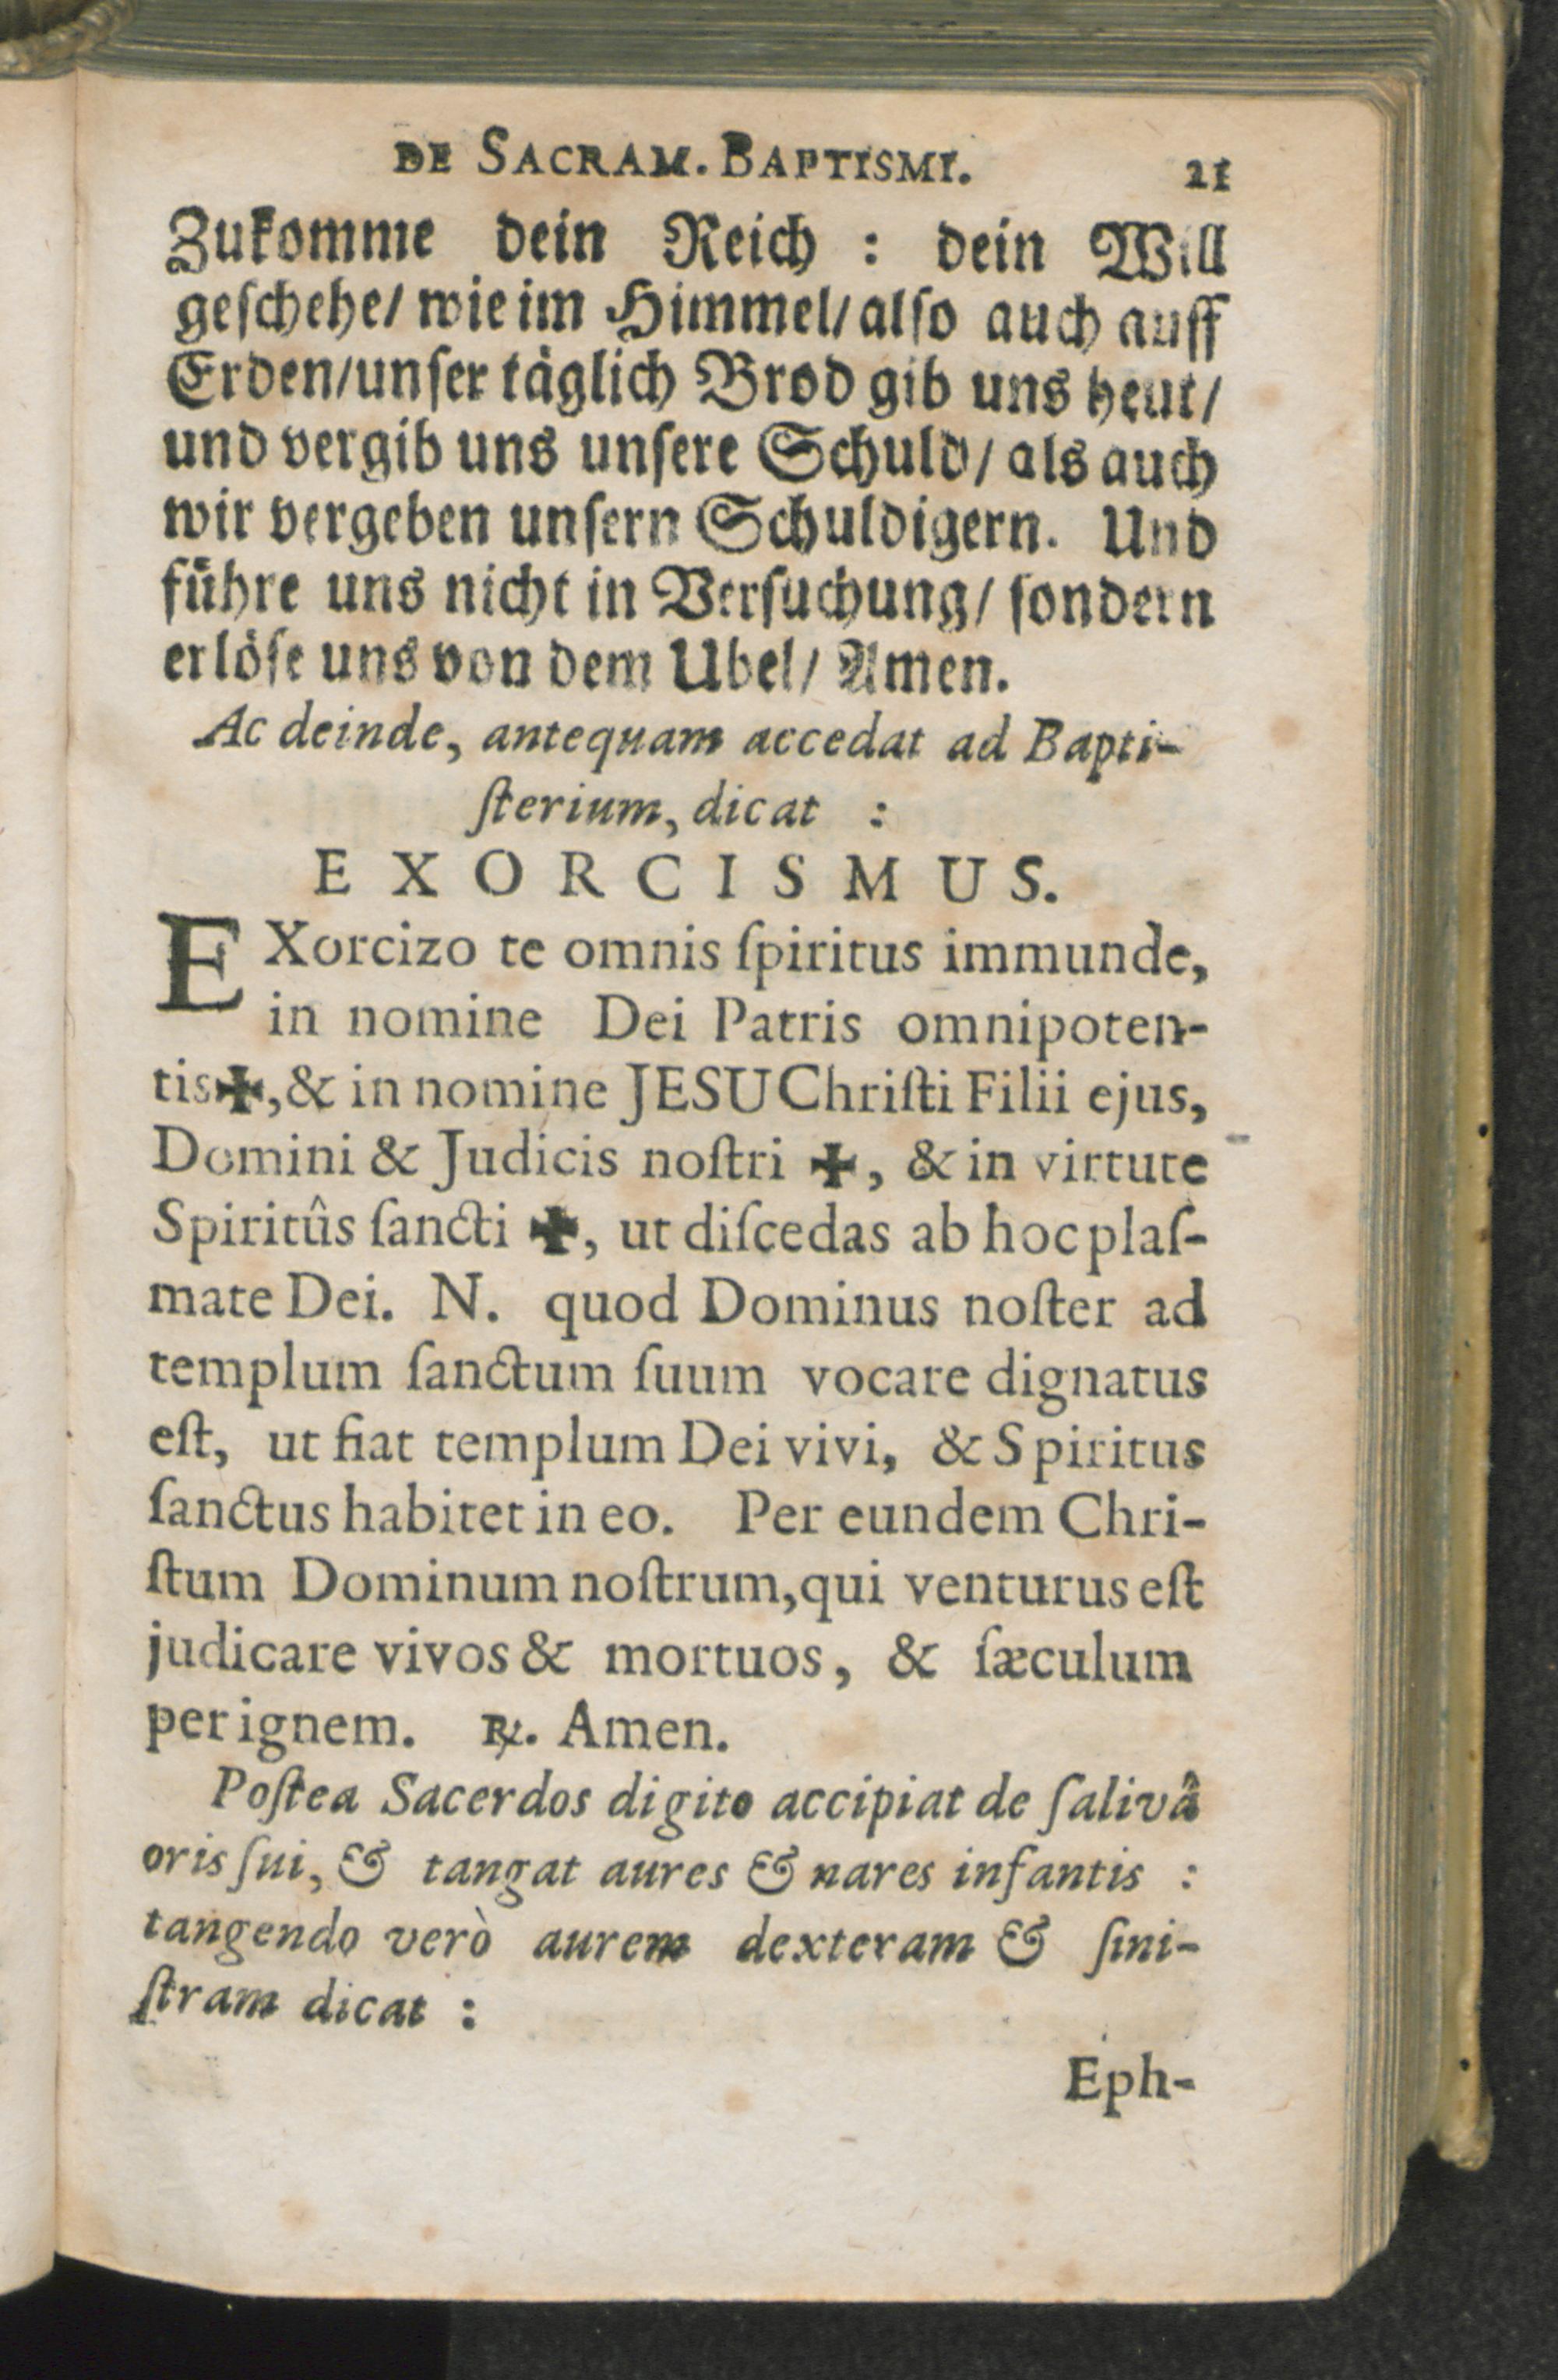 DE SACRAM. BAPTISMI. 21
Zukomme dein Reich : dein Will
geſchehe/ wie im Himmel/ alſo auch auff
Erden/ unſer täglich Brod gib uns heut/
und vergib uns unſere Schuld/ als auch
wir vergeben unſern Schuldigern. Und
führe uns nicht in Verſuchung/ ſondern
erlöſe uns von dem Ubel/ Amen.
Ac deinde, antequam accedat ad Bapti-
ſterium, dicat :
EXORCISMUS.
EXorcizo te omnis ſpiritus immunde,
in nomine Dei Patris omnipoten-
tis✠, & in nomine JESU Chriſti Filii ejus,
Domini & Judicis noſtri ✠, & in virtute
Spiritûs ſancti ✠, ut diſcedas ab hoc plaſ-
mate Dei. N. quod Dominus noſter ad
templum ſanctum ſuum vocare dignatus
eſt, ut fiat templum Dei vivi, & Spiritus
ſanctus habitet in eo. Per eundem Chri-
ſtum Dominum noſtrum, qui venturus eſt
judicare vivos & mortuos, & ſæculum
per ignem. ℞. Amen.
Poſtea Sacerdos digito accipiat de ſalivâ
oris ſui, & tangat aures & nares infantis :
tangendo verò aurem dexteram & ſini-
ſtram dicat :
Eph-